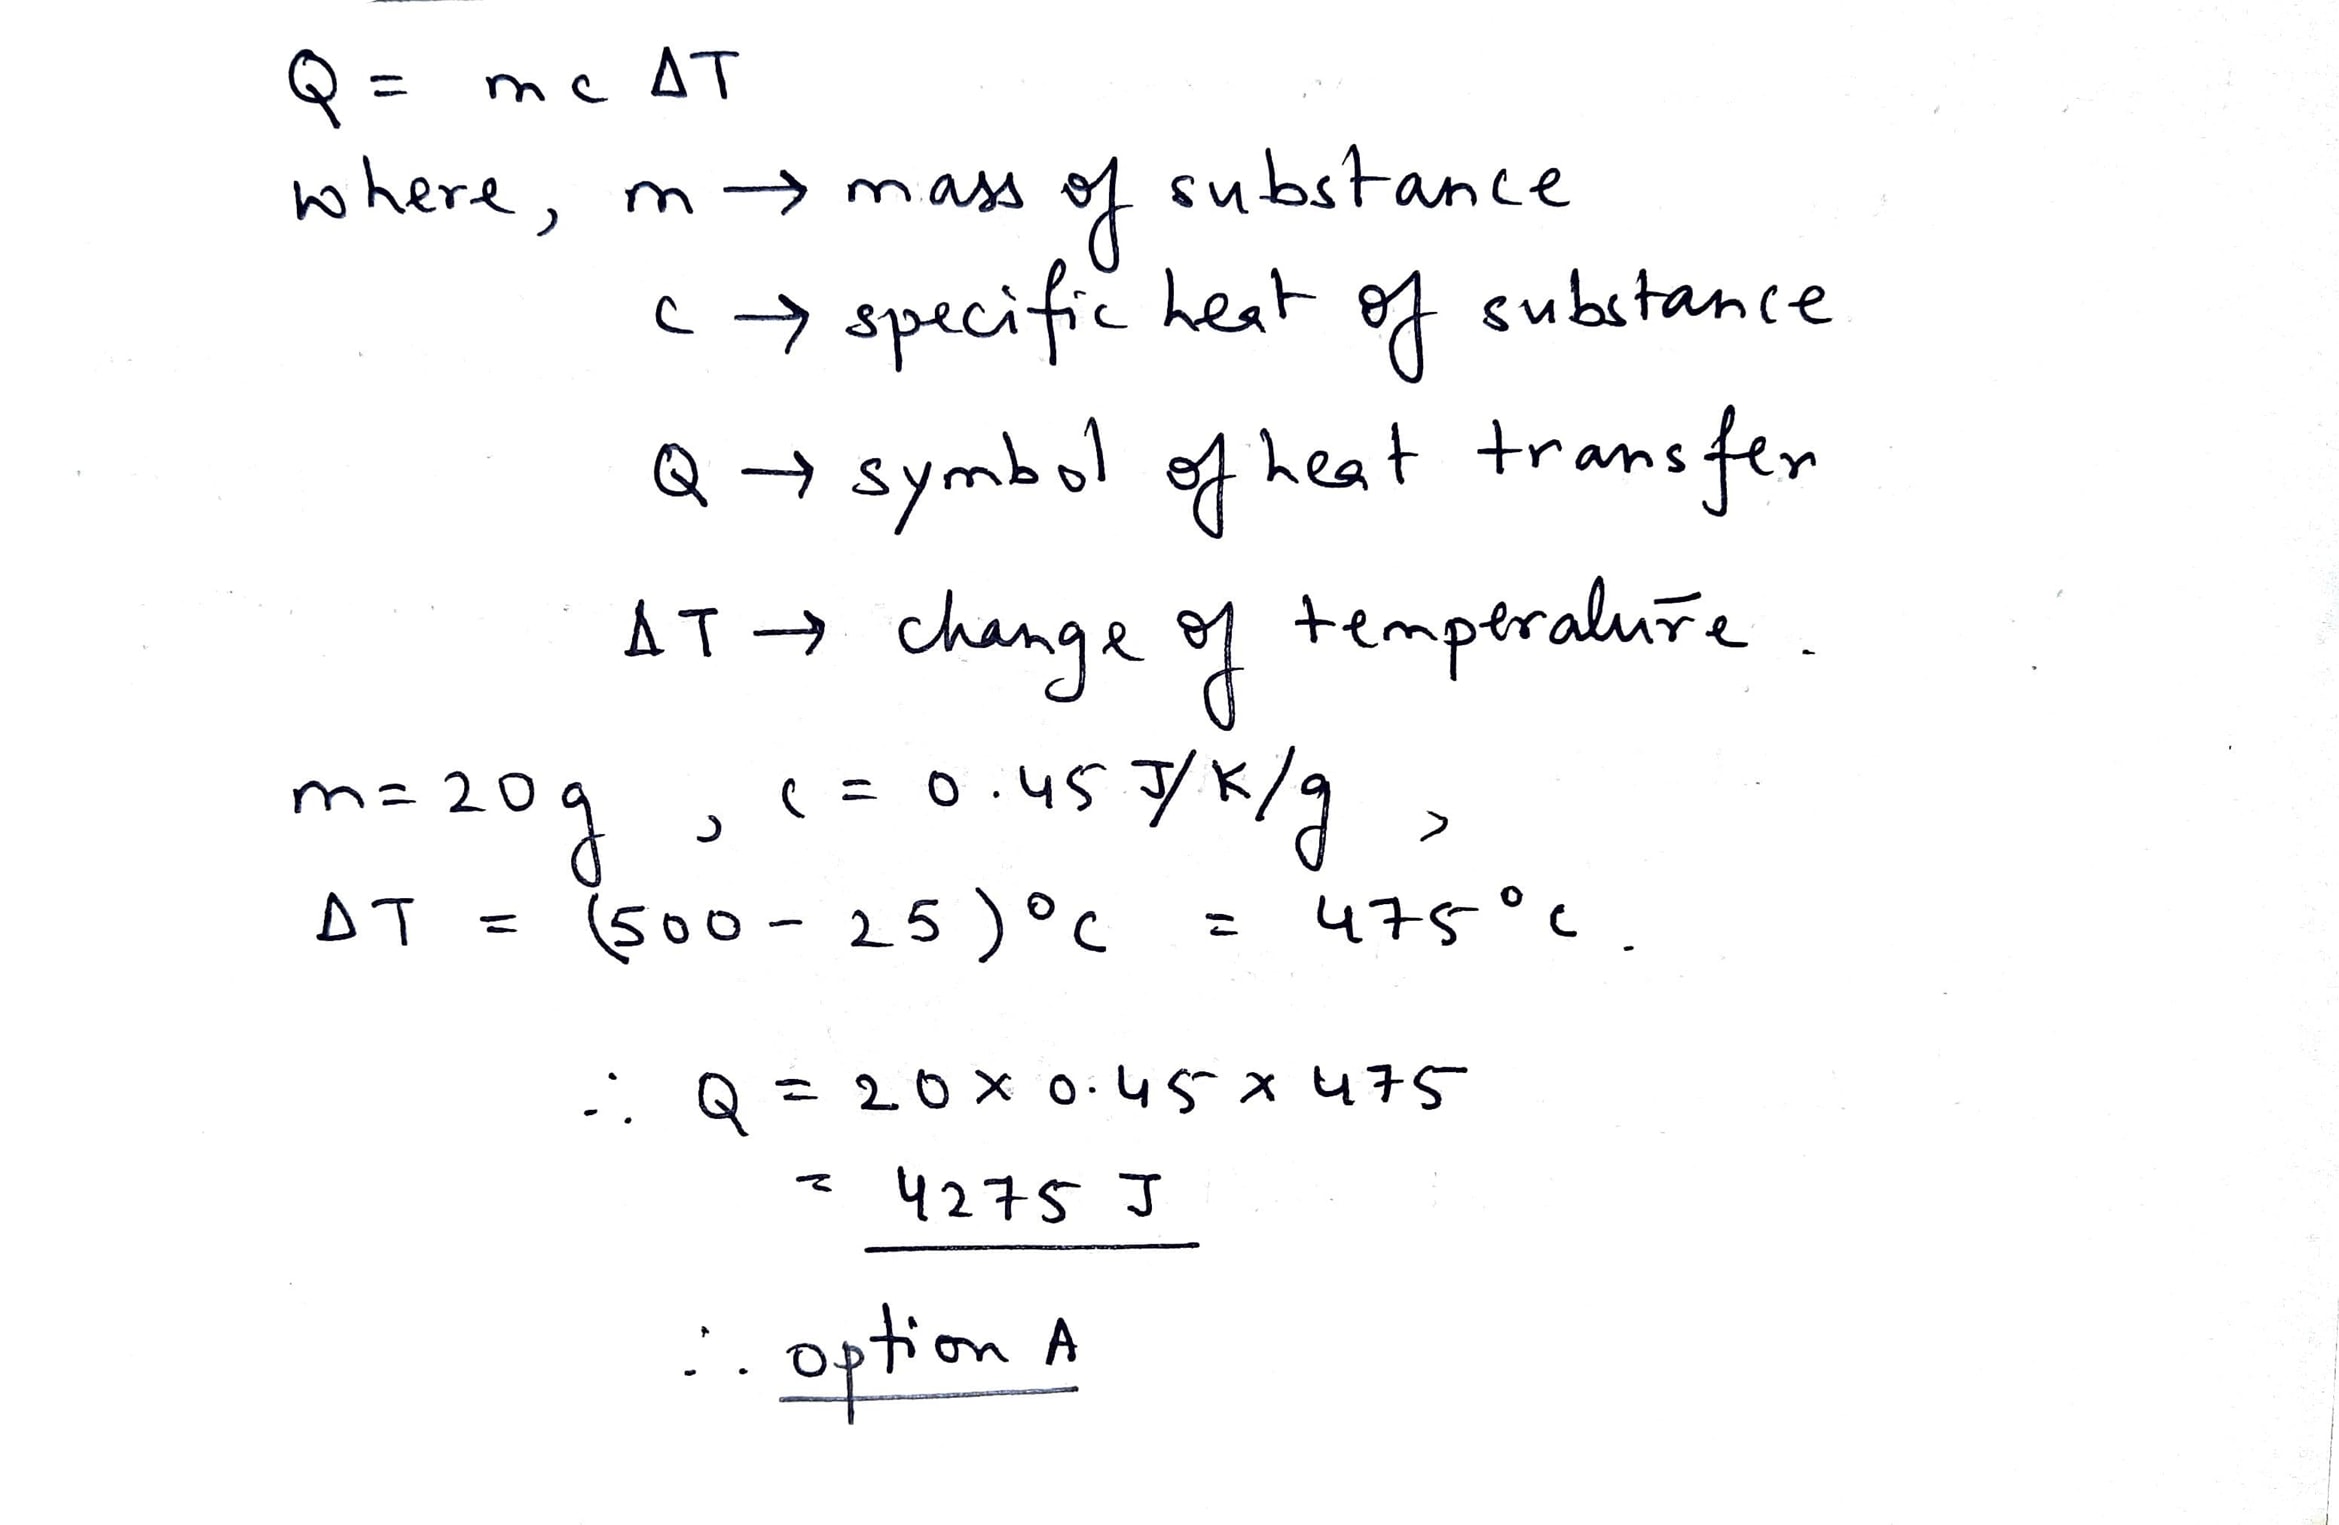 Q = mc ΔT
where, m → mass of substance
c → specific heat of substance
Q → symbol of heat transfer
ΔT → change of temperature.
m = 20g, c = 0.45 J/K/g,
ΔT = (500 - 25)°c = 475°c.
∴ Q = 20 x 0.45 x 475
= 4275 J
∴ option A